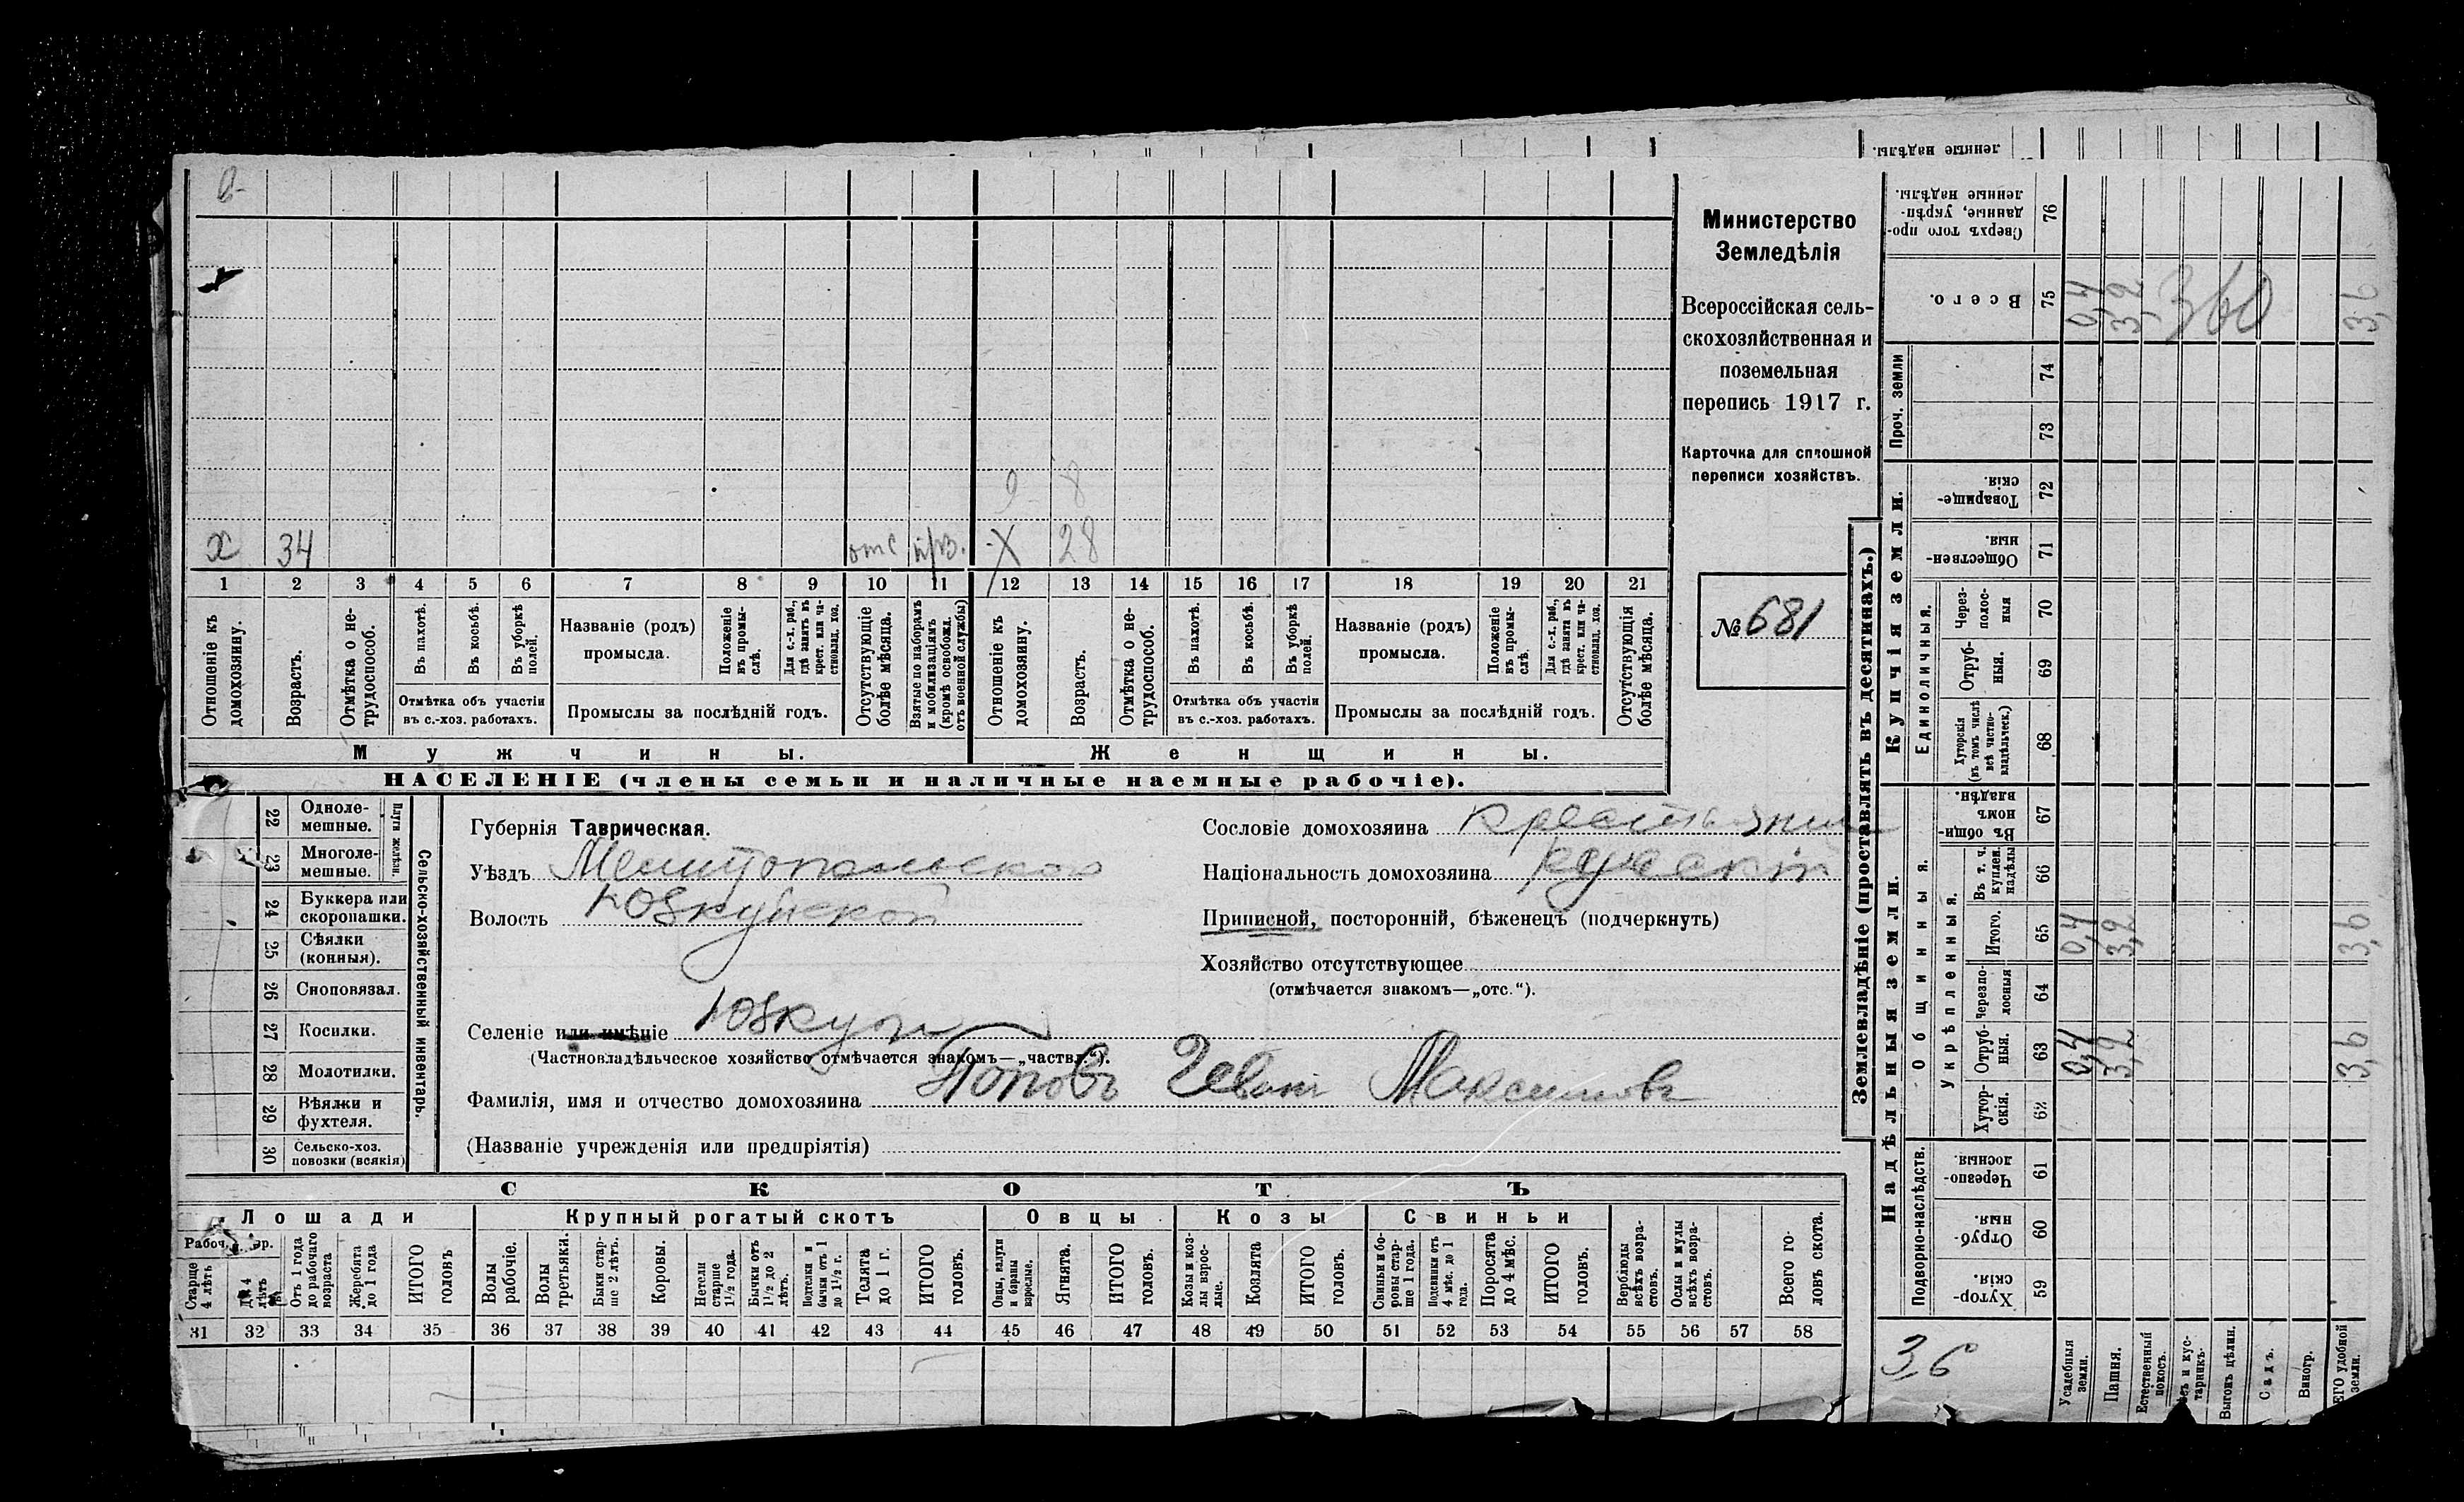 ленные надѣлы.
х 34 отс прз. Х 28
9 8
1 2 3 4 5 6 7 8 9 10 11 12 13 14 15 16 17 18 19 20 21
Отношеніе къ домохозяину.
Возрастъ.
Отмѣтка о нетрудоспособ.
Въ пахотѣ.
Въ косьбѣ.
Въ уборкѣ полей.
Отмѣтка объ участіи
въ с.-хоз. работахъ.
Названіе (родъ)
промысла.
Положеніе въ промыслѣ.
Для с.-х. раб., гдѣ занятъ въ крест. или частновлад. хоз.
Промыслы за послѣдній годъ.
Отсутствующіе болѣе мѣсяца.
Взятые по наборамъ и мобилизаціямъ (кромѣ освобожд. отъ военной службы)
Отношеніе къ домохозяину.
Возрастъ.
Отмѣтка о нетрудоспособ.
Въ пахотѣ.
Въ косьбѣ.
Въ уборкѣ полей.
Отмѣтка объ участіи
въ с.-хоз. работахъ.
Названіе (родъ)
промысла.
Положеніе въ промыслѣ.
Для с.-х. раб., гдѣ занята въ крест. или частновлад. хоз.
Промыслы за послѣдній годъ.
Отсутствующія болѣе мѣсяца.
Мужчины. Женщины.
НАСЕЛЕНІЕ (члены семьи и наличные наемные рабочіе).
Министерство
Земледѣлія
Всероссійская сель-
скохозяйственная и
поземельная
перепись 1917 г.
Карточка для сплошной
переписи хозяйствъ.
№ 681
22 Одноле-
мешные.
23 Многоле-
мешные.
Плуги желѣзн.
24 Буккера или
скоропашки.
25 Сѣялки
(конныя).
26 Сноповязал.
27 Косилки.
28 Молотилки.
29 Вѣялки и
фухтеля.
30 Сельско-хоз.
повозки (всякія)
Сельско-хозяйственный инвентарь.
Губернія Таврическая.
Уѣздъ Мелитопольской
Волость Юзкуйской
Селеніе или имѣніе Юзкуи
(Частновладѣльческое хозяйство отмѣчается знакомъ—„частвл.“).
Фамилія, имя и отчество домохозяина Поповъ Максимовъ
(Названіе учрежденія или предпріятія)
Сословіе домохозяина крестьянин
Національность домохозяина русскій
Приписной, посторонній, бѣженецъ (подчеркнуть)
Хозяйство отсутствующее
(отмѣчается знакомъ—„отс.“).
СКОТЪ
Лошади Крупный рогатый скотъ Овцы Козы Свиньи
Рабоч.
Старше 4 лѣтъ
До 4 лѣтъ
Отъ 1 года до рабочаго возраста
Жеребята до 1 года
ИТОГО головъ
Волы рабочіе.
Волы третьяки.
Быки старше 2 лѣтъ.
Коровы.
Нетели старше 1½ года.
Бычки отъ 1½ до 2 лѣтъ.
Подтелки и бычки отъ 1 до 1½ г.
Телята до 1 г.
ИТОГО головъ.
Овцы, валухи и бараны взрослые.
Ягнята.
ИТОГО головъ.
Козы и козлы взрослые.
Козлята
ИТОГО головъ.
Свиньи и боровы старше 1 года.
Подсвинки отъ 4 мѣс. до 1 года.
Поросята до 4 мѣс.
ИТОГО головъ.
Верблюды всѣхъ возрастовъ.
Ослы и мулы всѣхъ возрастовъ.
Всего головъ скота.
31 32 33 34 35 36 37 38 39 40 41 42 43 44 45 46 47 48 49 50 51 52 53 54 55 56 57 58
Землевладѣніе (проставлять въ десятинахъ.)
Надѣльныя земли. Купчія земли. Проч. земли
Подворно-наслѣдств. Общинныя. Единоличныя.
Укрѣпленныя.
Сверхъ того проданные, укрѣпленные надѣлы. 76
Всего. 75 0,4 3,2 360 3,6
74
73
Товарищескія. 72
Общественныя. 71
Черезполосныя 70
Отрубныя. 69
Хуторскія (въ томъ числѣ всѣ частновладѣльческ.) 68
Въ общинномъ владѣн. 67
Въ т. ч. куплен. надѣлы 66
Итого. 65 0,4 3,2 3,6
Черезполосныя 64
Отрубныя. 63 0,4 3,2 3,6
Хуторскія. 62
Черезполосныя. 61
Отрубныя. 60
Хуторскія. 59
3,6
Усадебныя земли.
Пашня.
Естественный покосъ.
Выгонъ цѣлин.
Садъ.
Виногр.